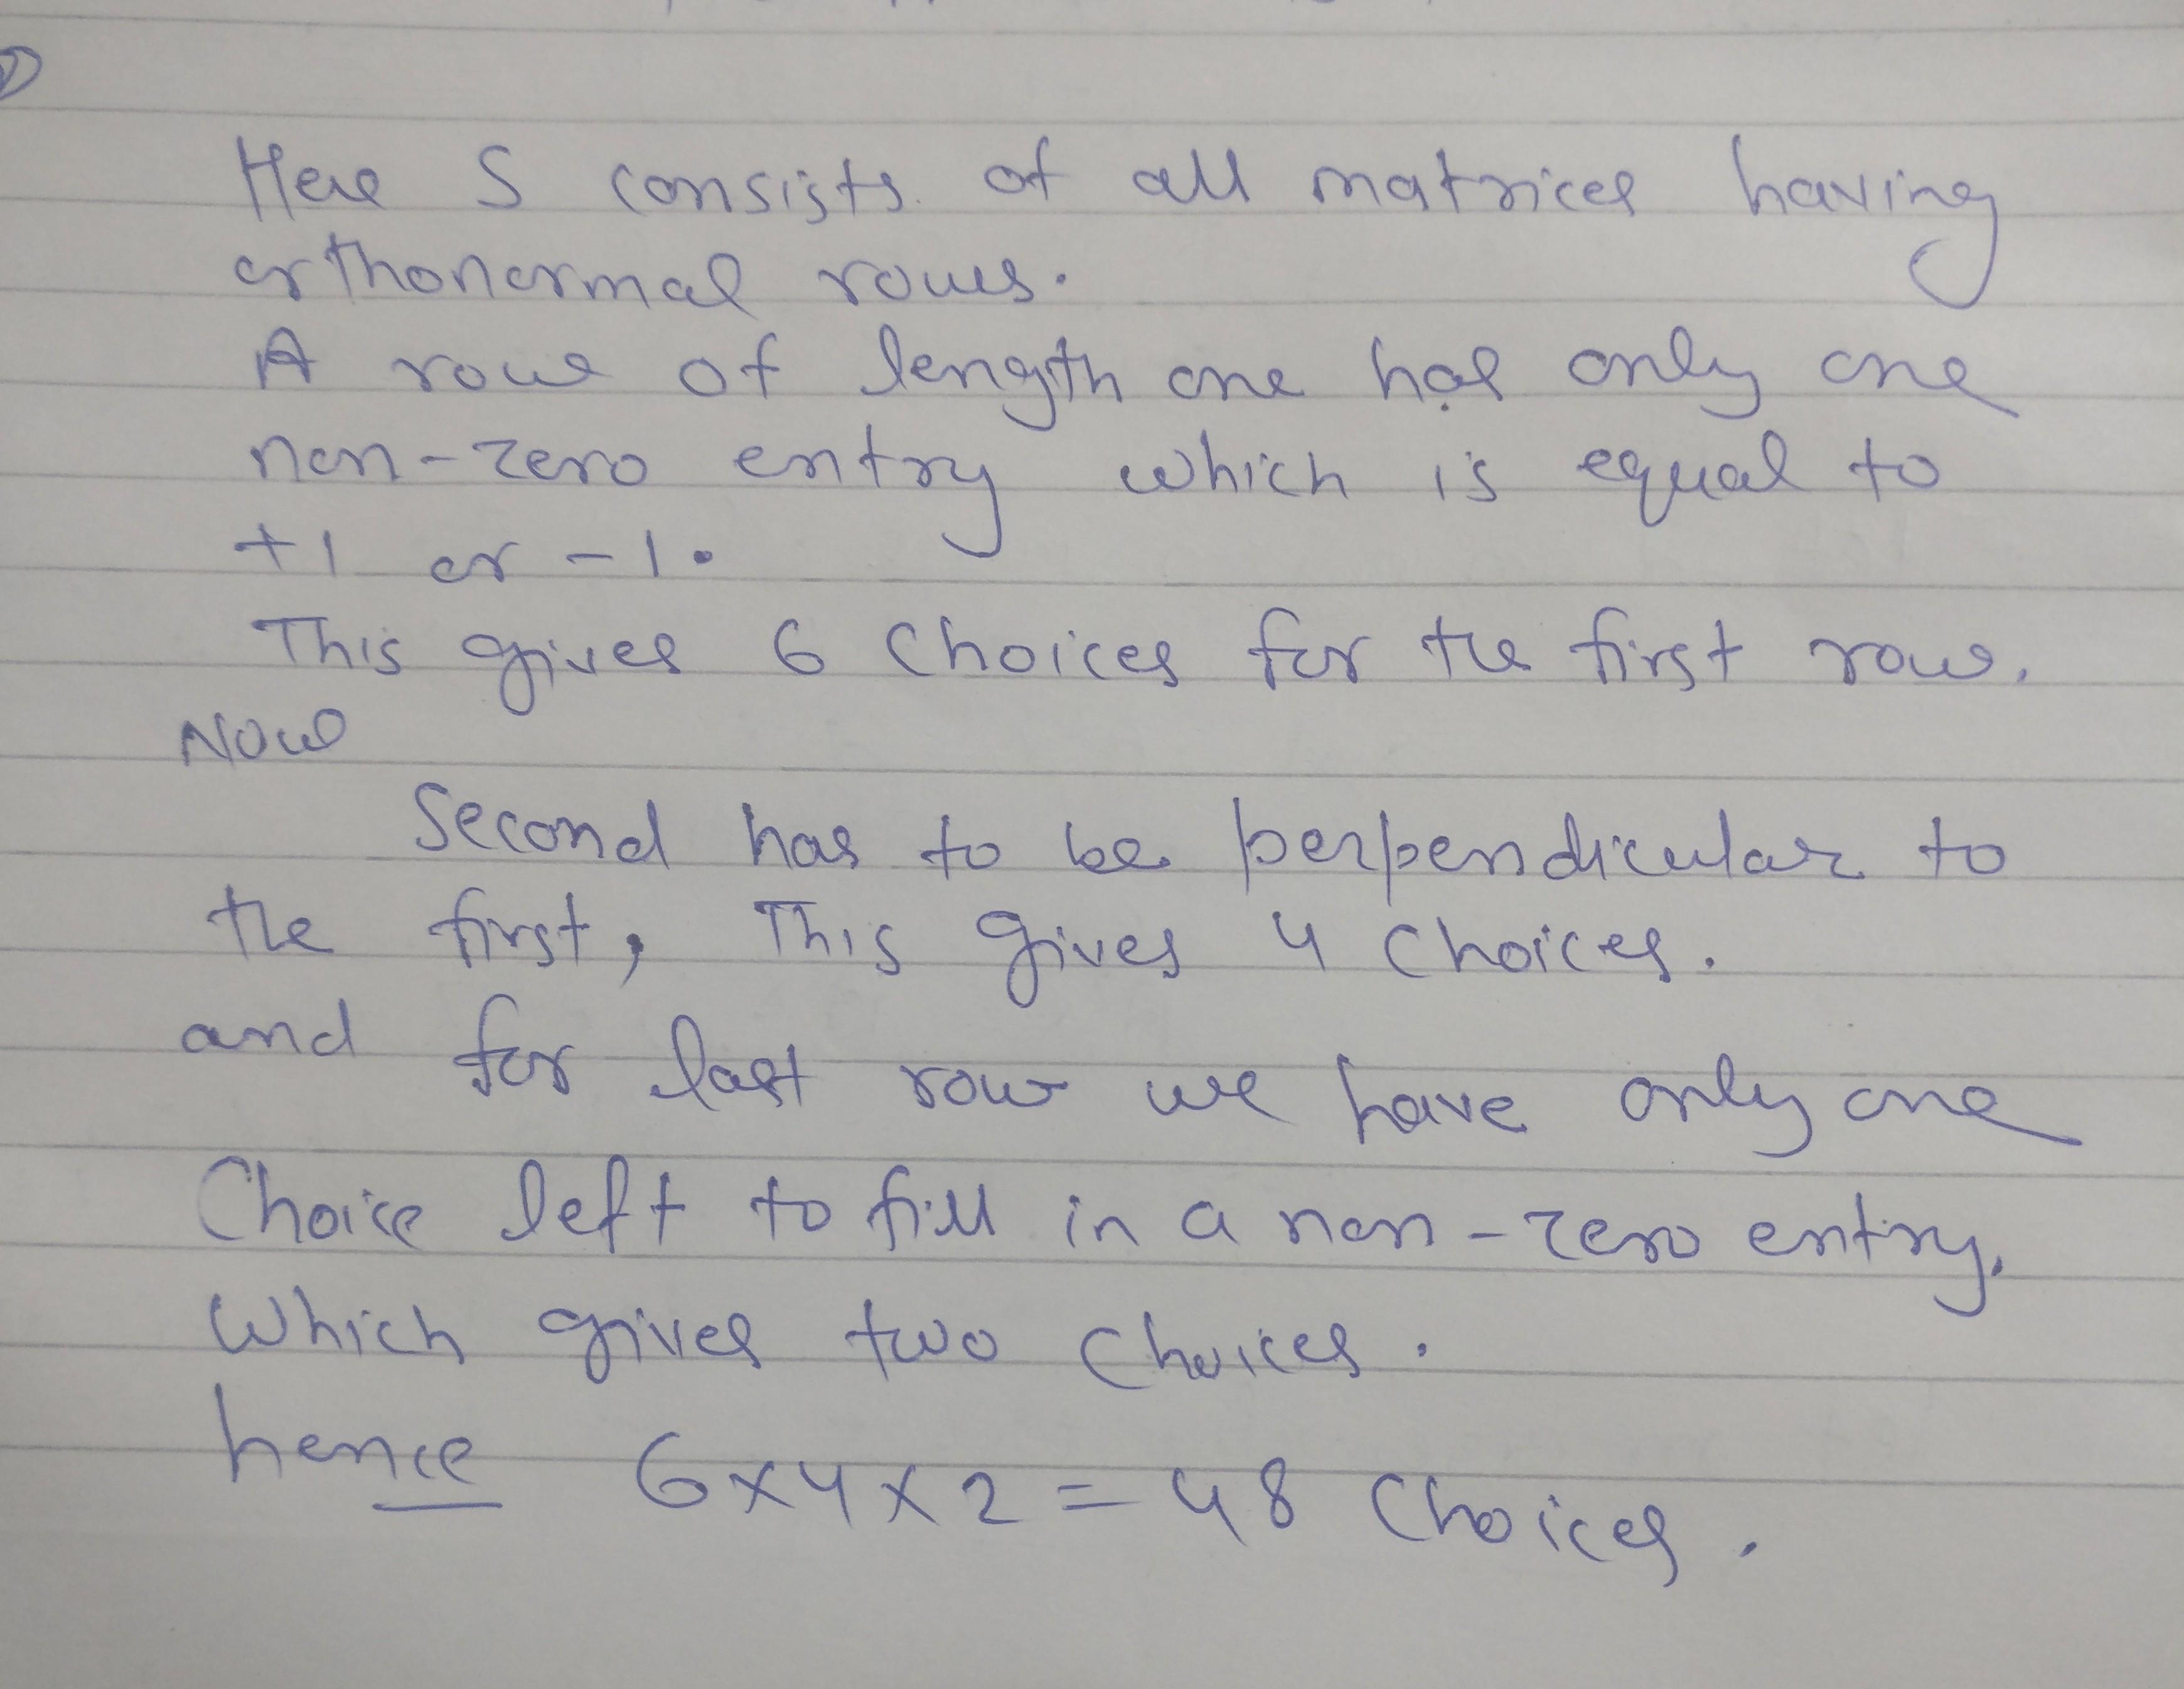 Here S consists of all matrices having
orthonormal rows.
A row of length one has only one
non-zero entry which is equal to
+1 or -1.
This gives 6 choices for the first row.
Now
Second has to be perpendicular to
the first, This gives 4 choices.
and for last row we have only one
Choice left to fill in a non-zero entry,
Which gives two choices.
hence 6x4x2=48 choices.